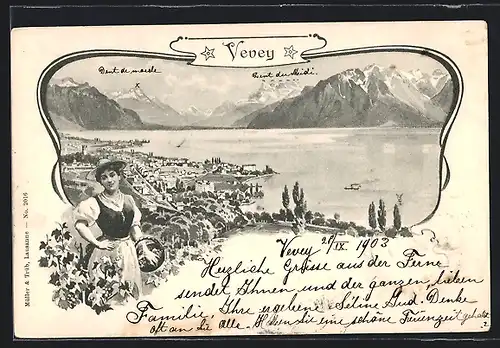 Vevey
Dent de morcle
Dent du Midi.
Müller & Trüb, Lausanne — No. 2016
Vevey 20/IX. 1903
Herzliche Grüsse aus der Ferne
sendet Ihnen und der ganzen lieben
Familie, Ihre ergebene Denke
oft an Sie alle. Sie eine schöne Ferienzeit gehabt